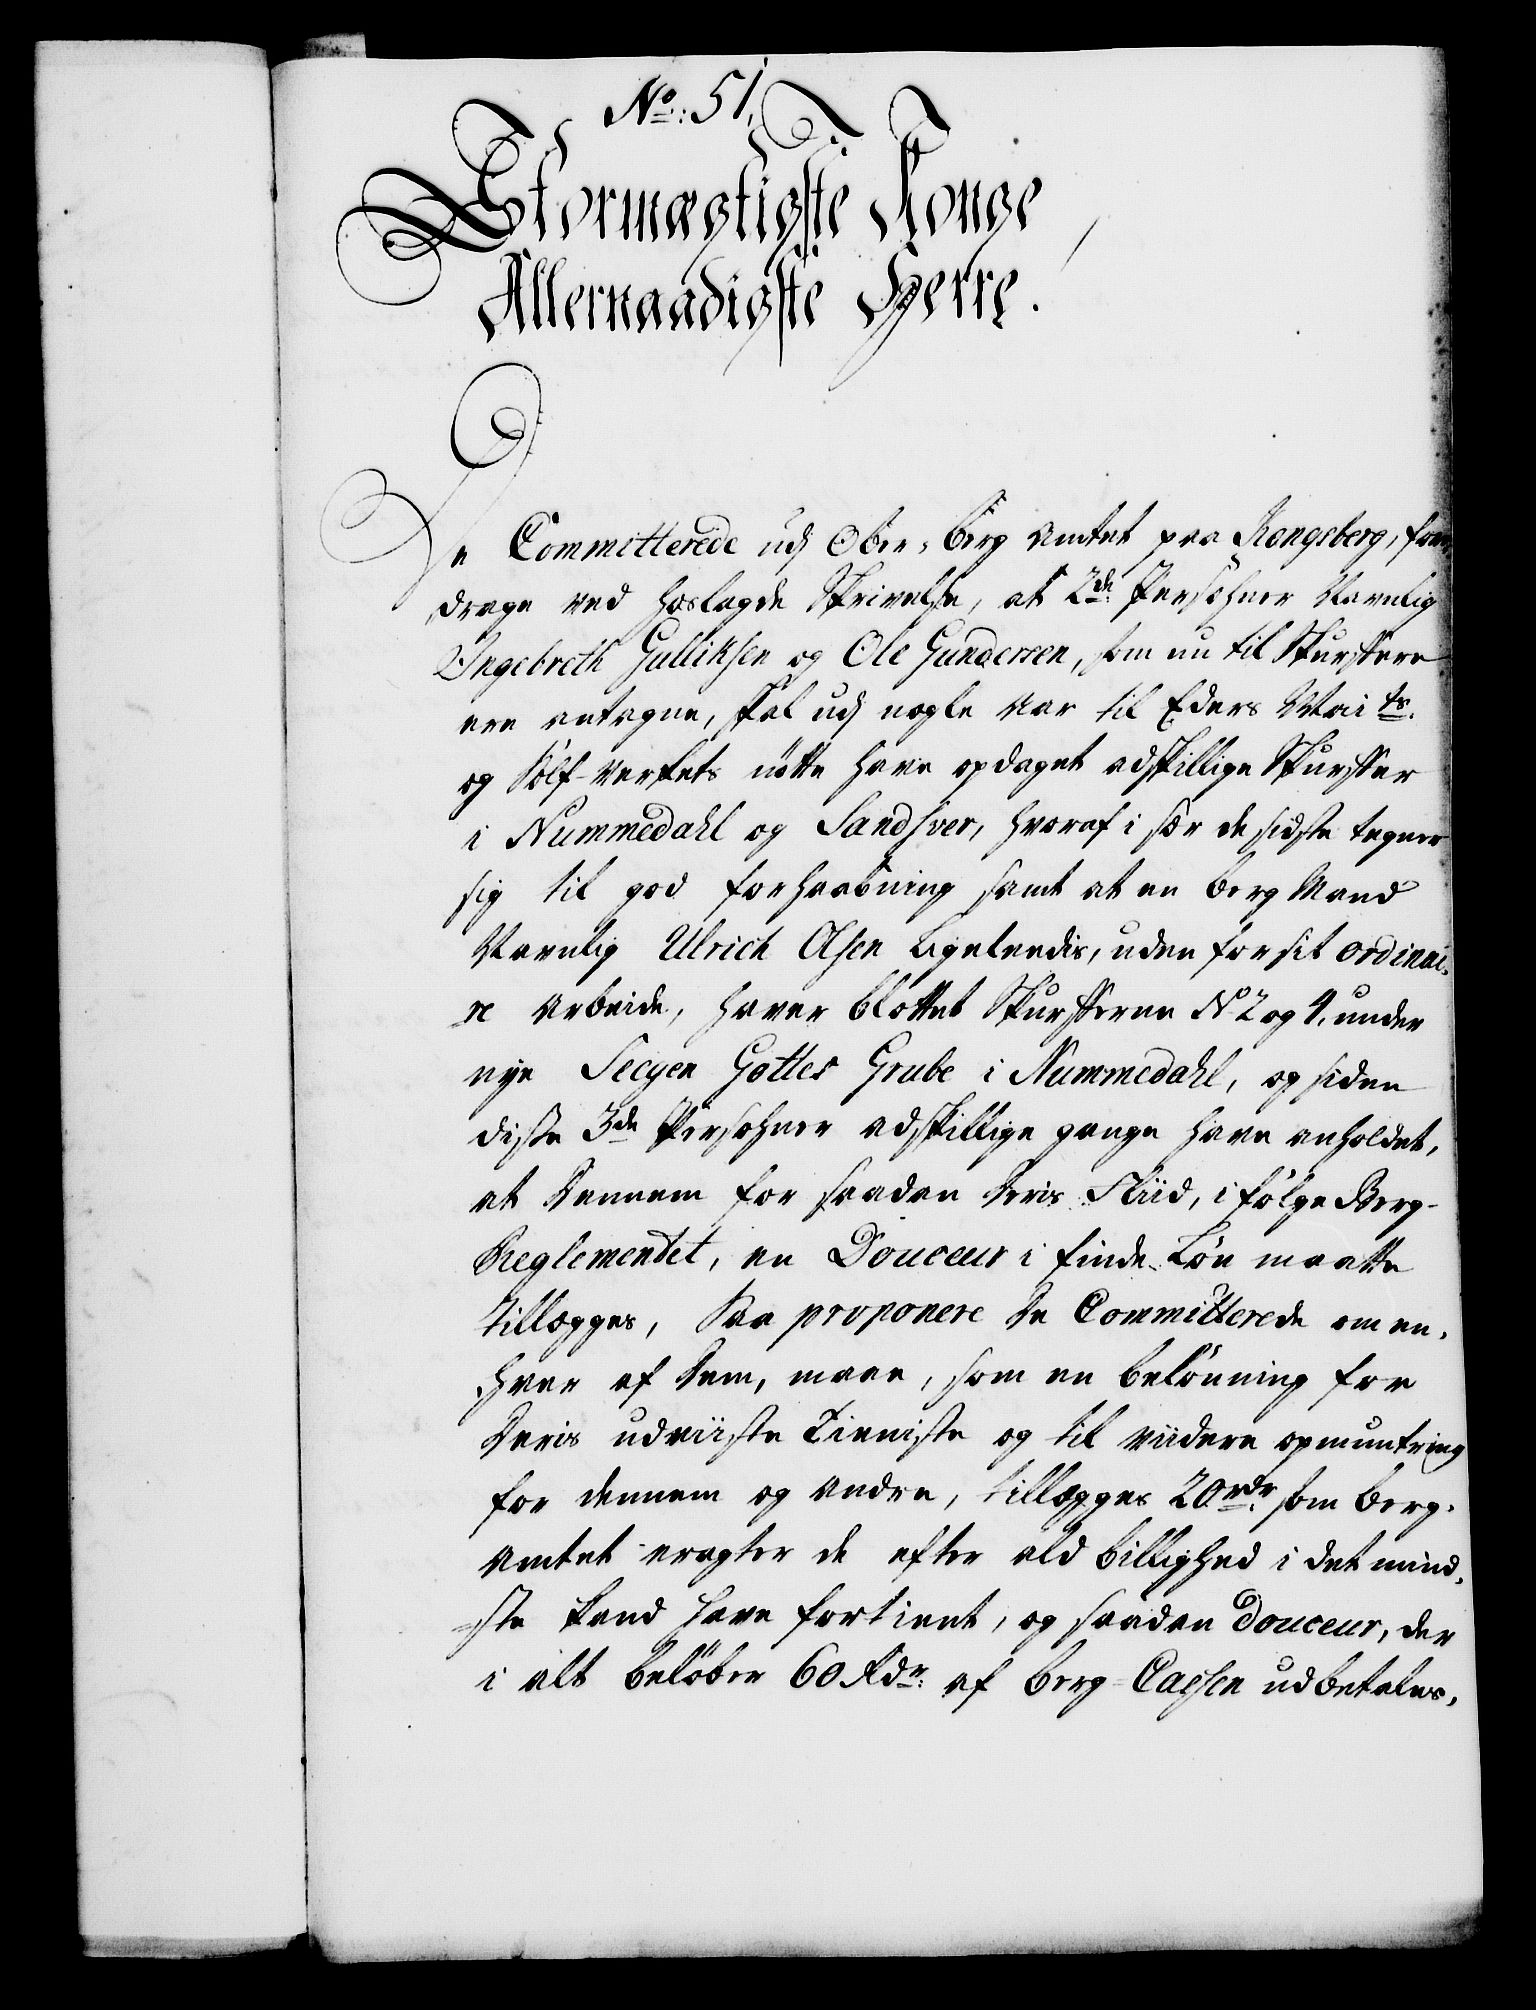 No: 51.
Stormægtigste Konge
Allernaadigste Herre.
De Committerede udj Ober-Berg Amtet paa Kongsberg, fore
drage ved hoslagde Skrivelse, at 2de Persohner Navnlig
Ingebreth Gulliksen og Ole Gundersen, som nu til Skurffere
ere antagne, skal udj nogle Aar til Eders Mai ts.
og Sølf-Verkets nötte have opdaget adskillige Skurffer
i Nummedahl og Sandsver, hvoraf i sær de sidste tegner
sig til god forhaabning samt at en berg Mand
Navnlig Ulrich Olsen ligeledis, uden for sit ordinai-
re Arbeide, haver blottet Skurfferne No 2 og 4. under
nye Seegen Gottes Grube i Nummedahl, og siden
disse 3de Persohner adskillige gange have anholdet,
at dennem for saadan deris Fliid, i følge Berg-
Reglementet, en Douceur i finde-Løn maatte
tillægges, Saa proponere de Committerede om en-
hver af dem, maae, som en belönning for
deris udviiste Tieniste og til viidere opmuntring
for dennem og andre, tillægges 20 rdr. som berg-
Amtet eragter de efter ald billighed i det mind-
ste kand have fortient, og saadan Douceur, der
i alt belöber 60 Rdr. af berg-Cassen udbetales,